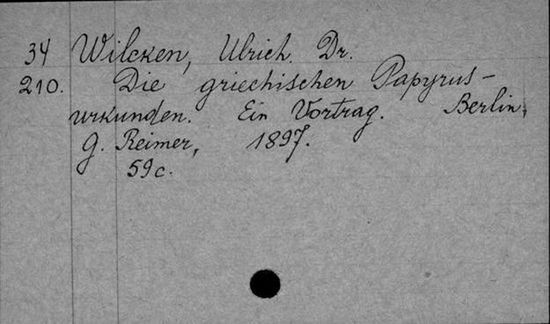 34 Wilcken, Ulrich. Dr.
210. Die griechischen Papyrus-
urkunden. Ein Vortrag. Berlin,
G. Reimer, 1897.
59c.